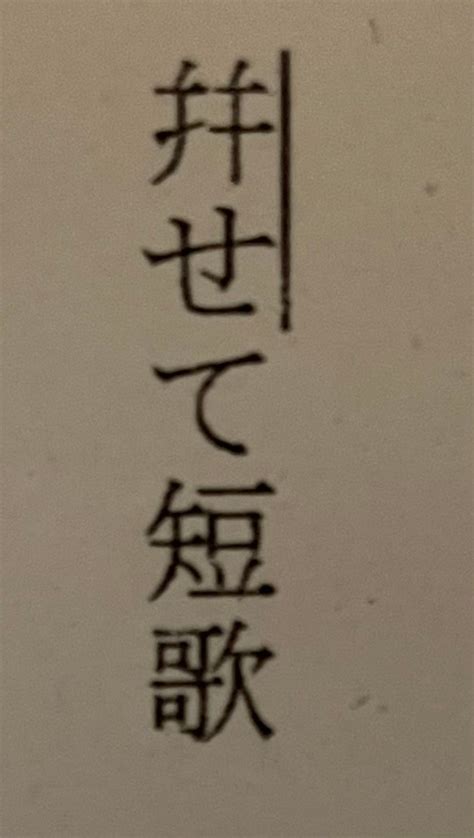 幷せて短歌